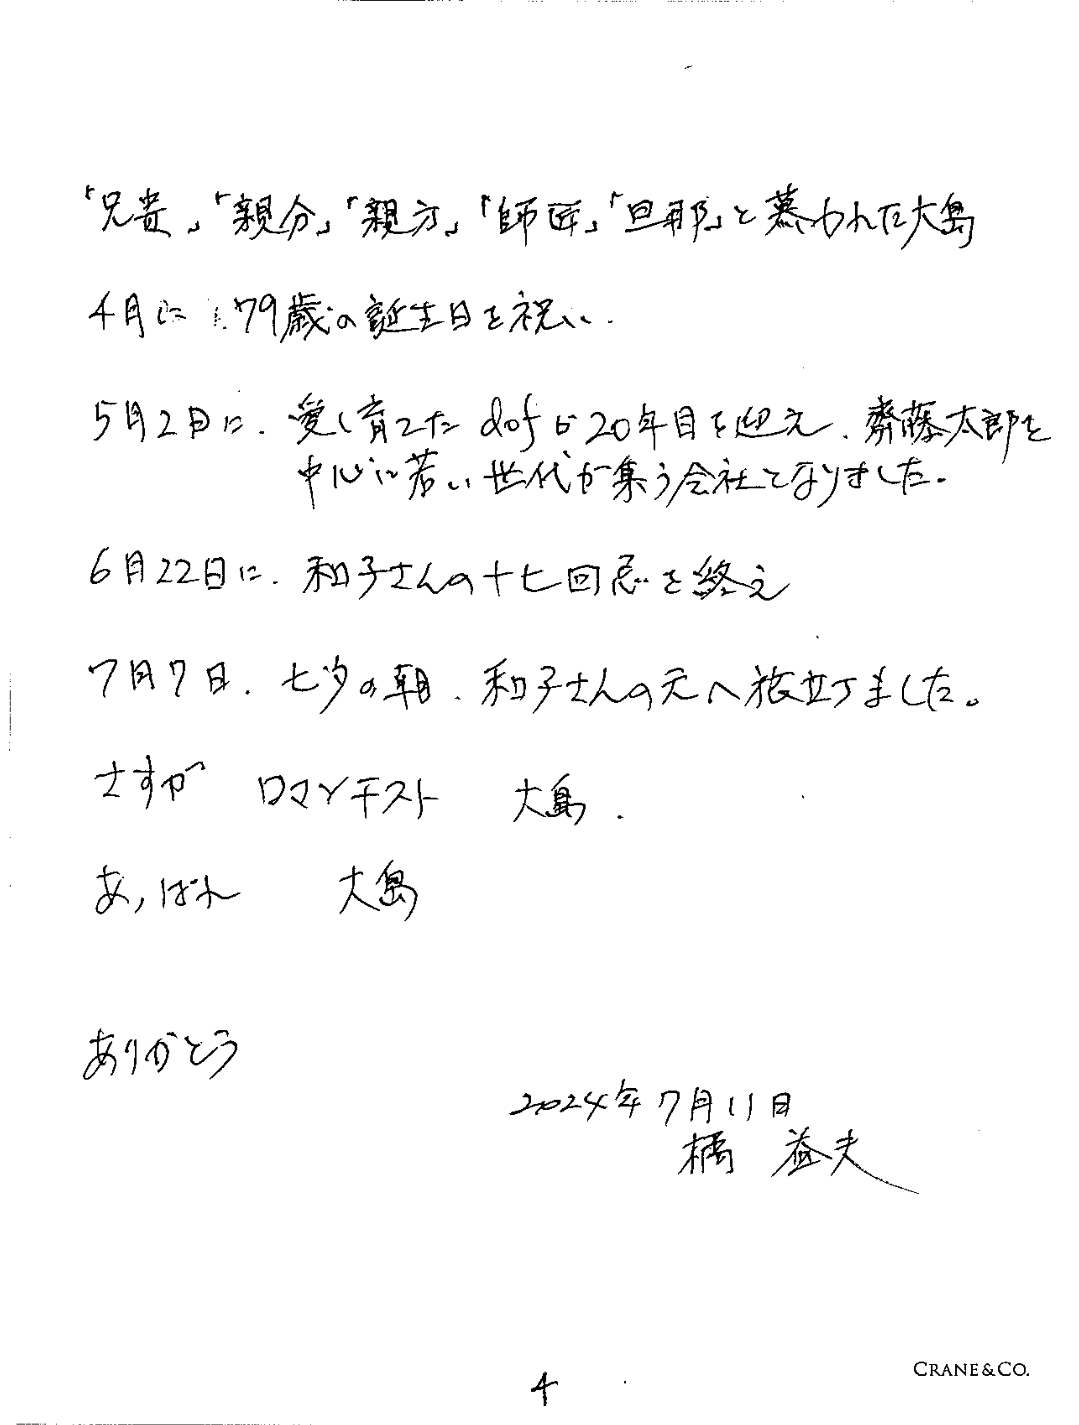 「兄貴」「親分」「親方」「師匠」「旦那」と慕われた大島
4月に 79歳の誕生日を祝い.
5月2日に、愛し育てたdofが20年目を迎え、齋藤太郎を
中心に若い世代が集う会社となりました。
6月22日に、和子さんの十七回忌を終え
7月7日、七夕の朝、和子さんの元へ旅立ちました。
さすが ロマンチスト 大島.
あっぱれ 大島
ありがとう
2024年7月11日
橘 益夫
CRANE & CO.
4